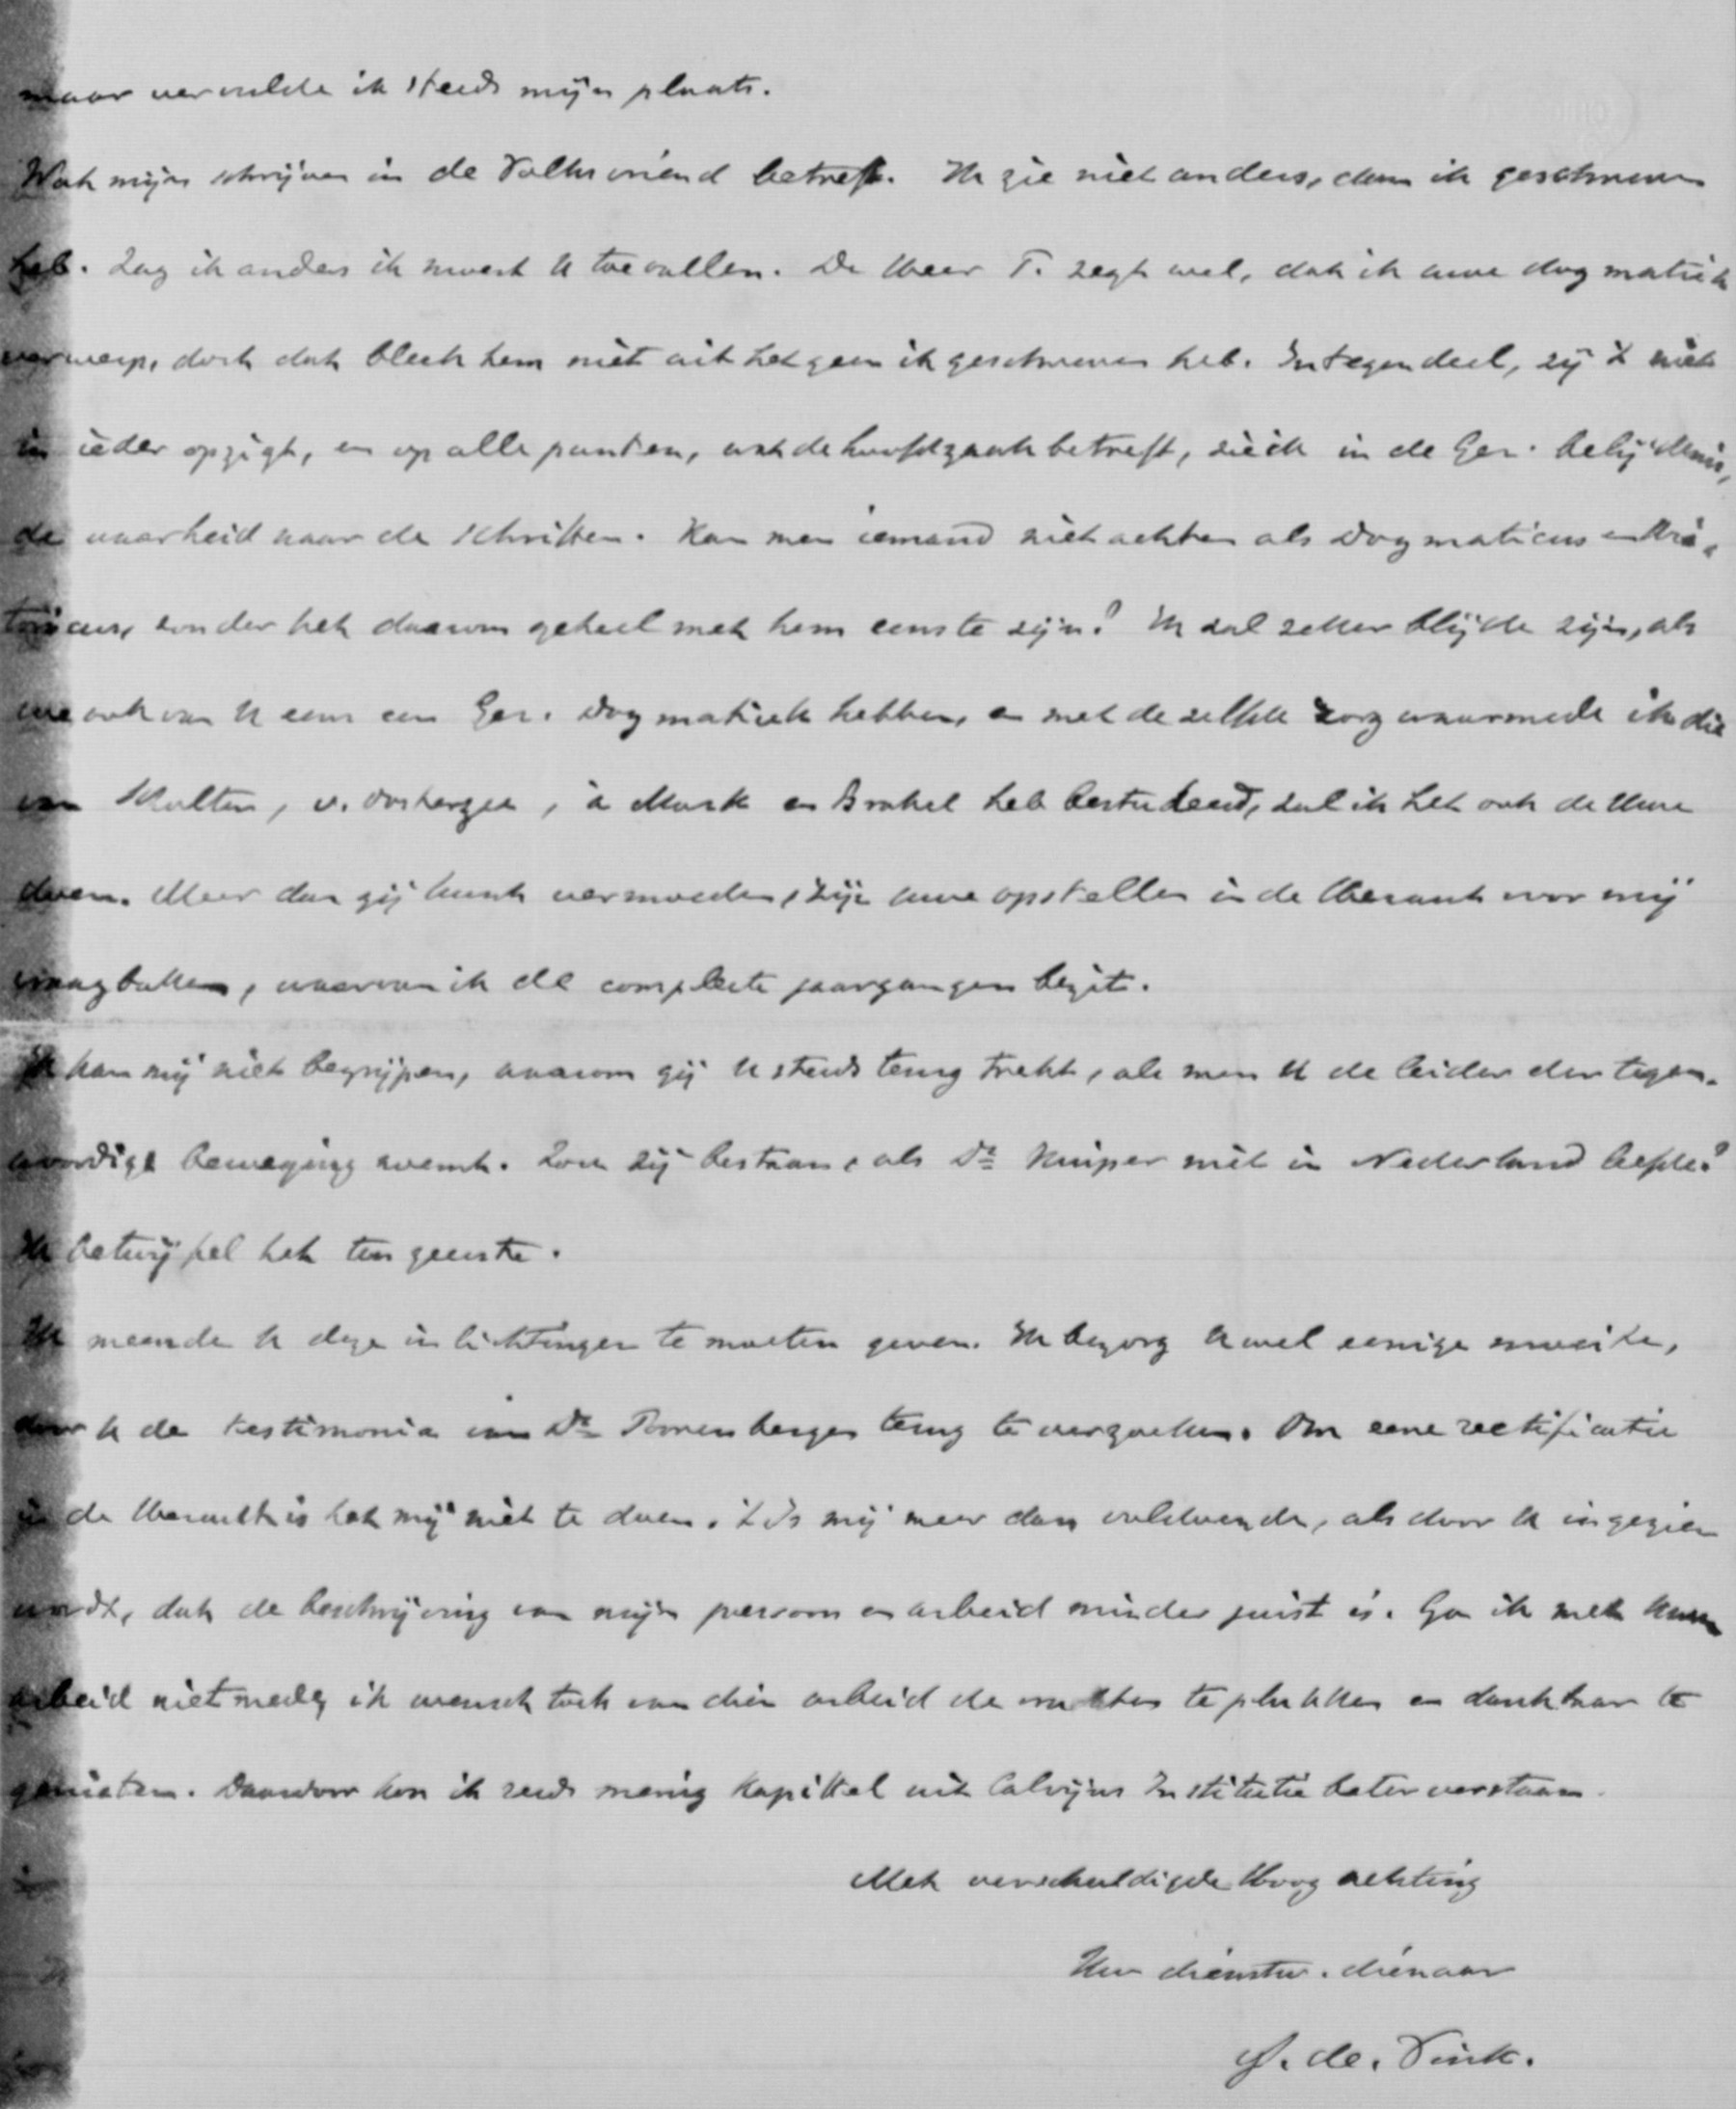 maar vervulde ik steeds mijn plaats.
Wat mijn schrijven in de Volksvriend betreft. Ik zie niet anders, dan ik geschreven
heb. Zag ik anders ik moest U toevallen. De Heer T. zegt wel, dat ik uwe dogmatiek
verwerp, doch dat bleek hem niet uit hetgeen ik geschreven heb. Integendeel, zij 't niet
in ieder opzigt, en op alle punten, wat de hoofdzaak betreft, zie ik in de Ger. belijdenis,
de waarheid naar de Schriften. Kan men iemand niet achten als Dogmaticus en His-
toricus, zonder het daarom geheel met hem eens te zijn? Ik zal zeker blijde zijn, als
we ook van U eens een Ger. Dogmatiek hebben, en met dezelfde zorg waarmede ik die
van Scholten, v. Oosterzee, à Mark en Brakel heb bestudeerd, zal ik het ook de Uwe
doen. Meer dan gij kunt vermoeden, zijn uwe opstellen in de Heraut voor mij
vraagbaken, waarvan ik de complete jaargangen bezit.
Ik kan mij niet begrijpen, waarom gij U steeds terug trekt, als men U de leider der tegen-
woordige beweging noemt. Zou zij bestaan, als Dr Kuiper niet in Nederland leefde?
Ik betwijfel het ten zeerste.
Ik meende U deze inlichtingen te moeten geven. Ik bezorg U wel eenige moeite,
door U de testimonia van Dr terug te verzoeken. Om eene rectificatie
in de Heraut is het mij niet te doen. 't Is mij meer dan voldoende, als door U ingezien
wordt, dat de beschrijving van mijn persoon en arbeid minder juist is. Ga ik met Uwen
arbeid niet mede, ik wensch toch van dien arbeid de vruchten te plukken en dankbaar te
genieten. Daardoor kon ik reeds menig kapittel uit Calvijns Institutie beter verstaan.
Met verschuldigde Hoogachting
Uw dienstw. dienaar
de Vink.